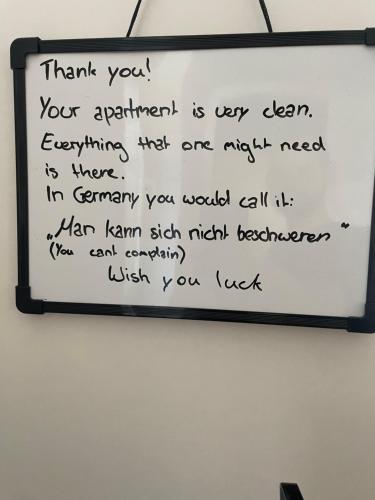 Thank you!
Your apartment is very clean.
Everything that one might need
is there.
In Germany you would call it:
„Man kann sich nicht beschweren"
(You cant complain)
Wish you luck